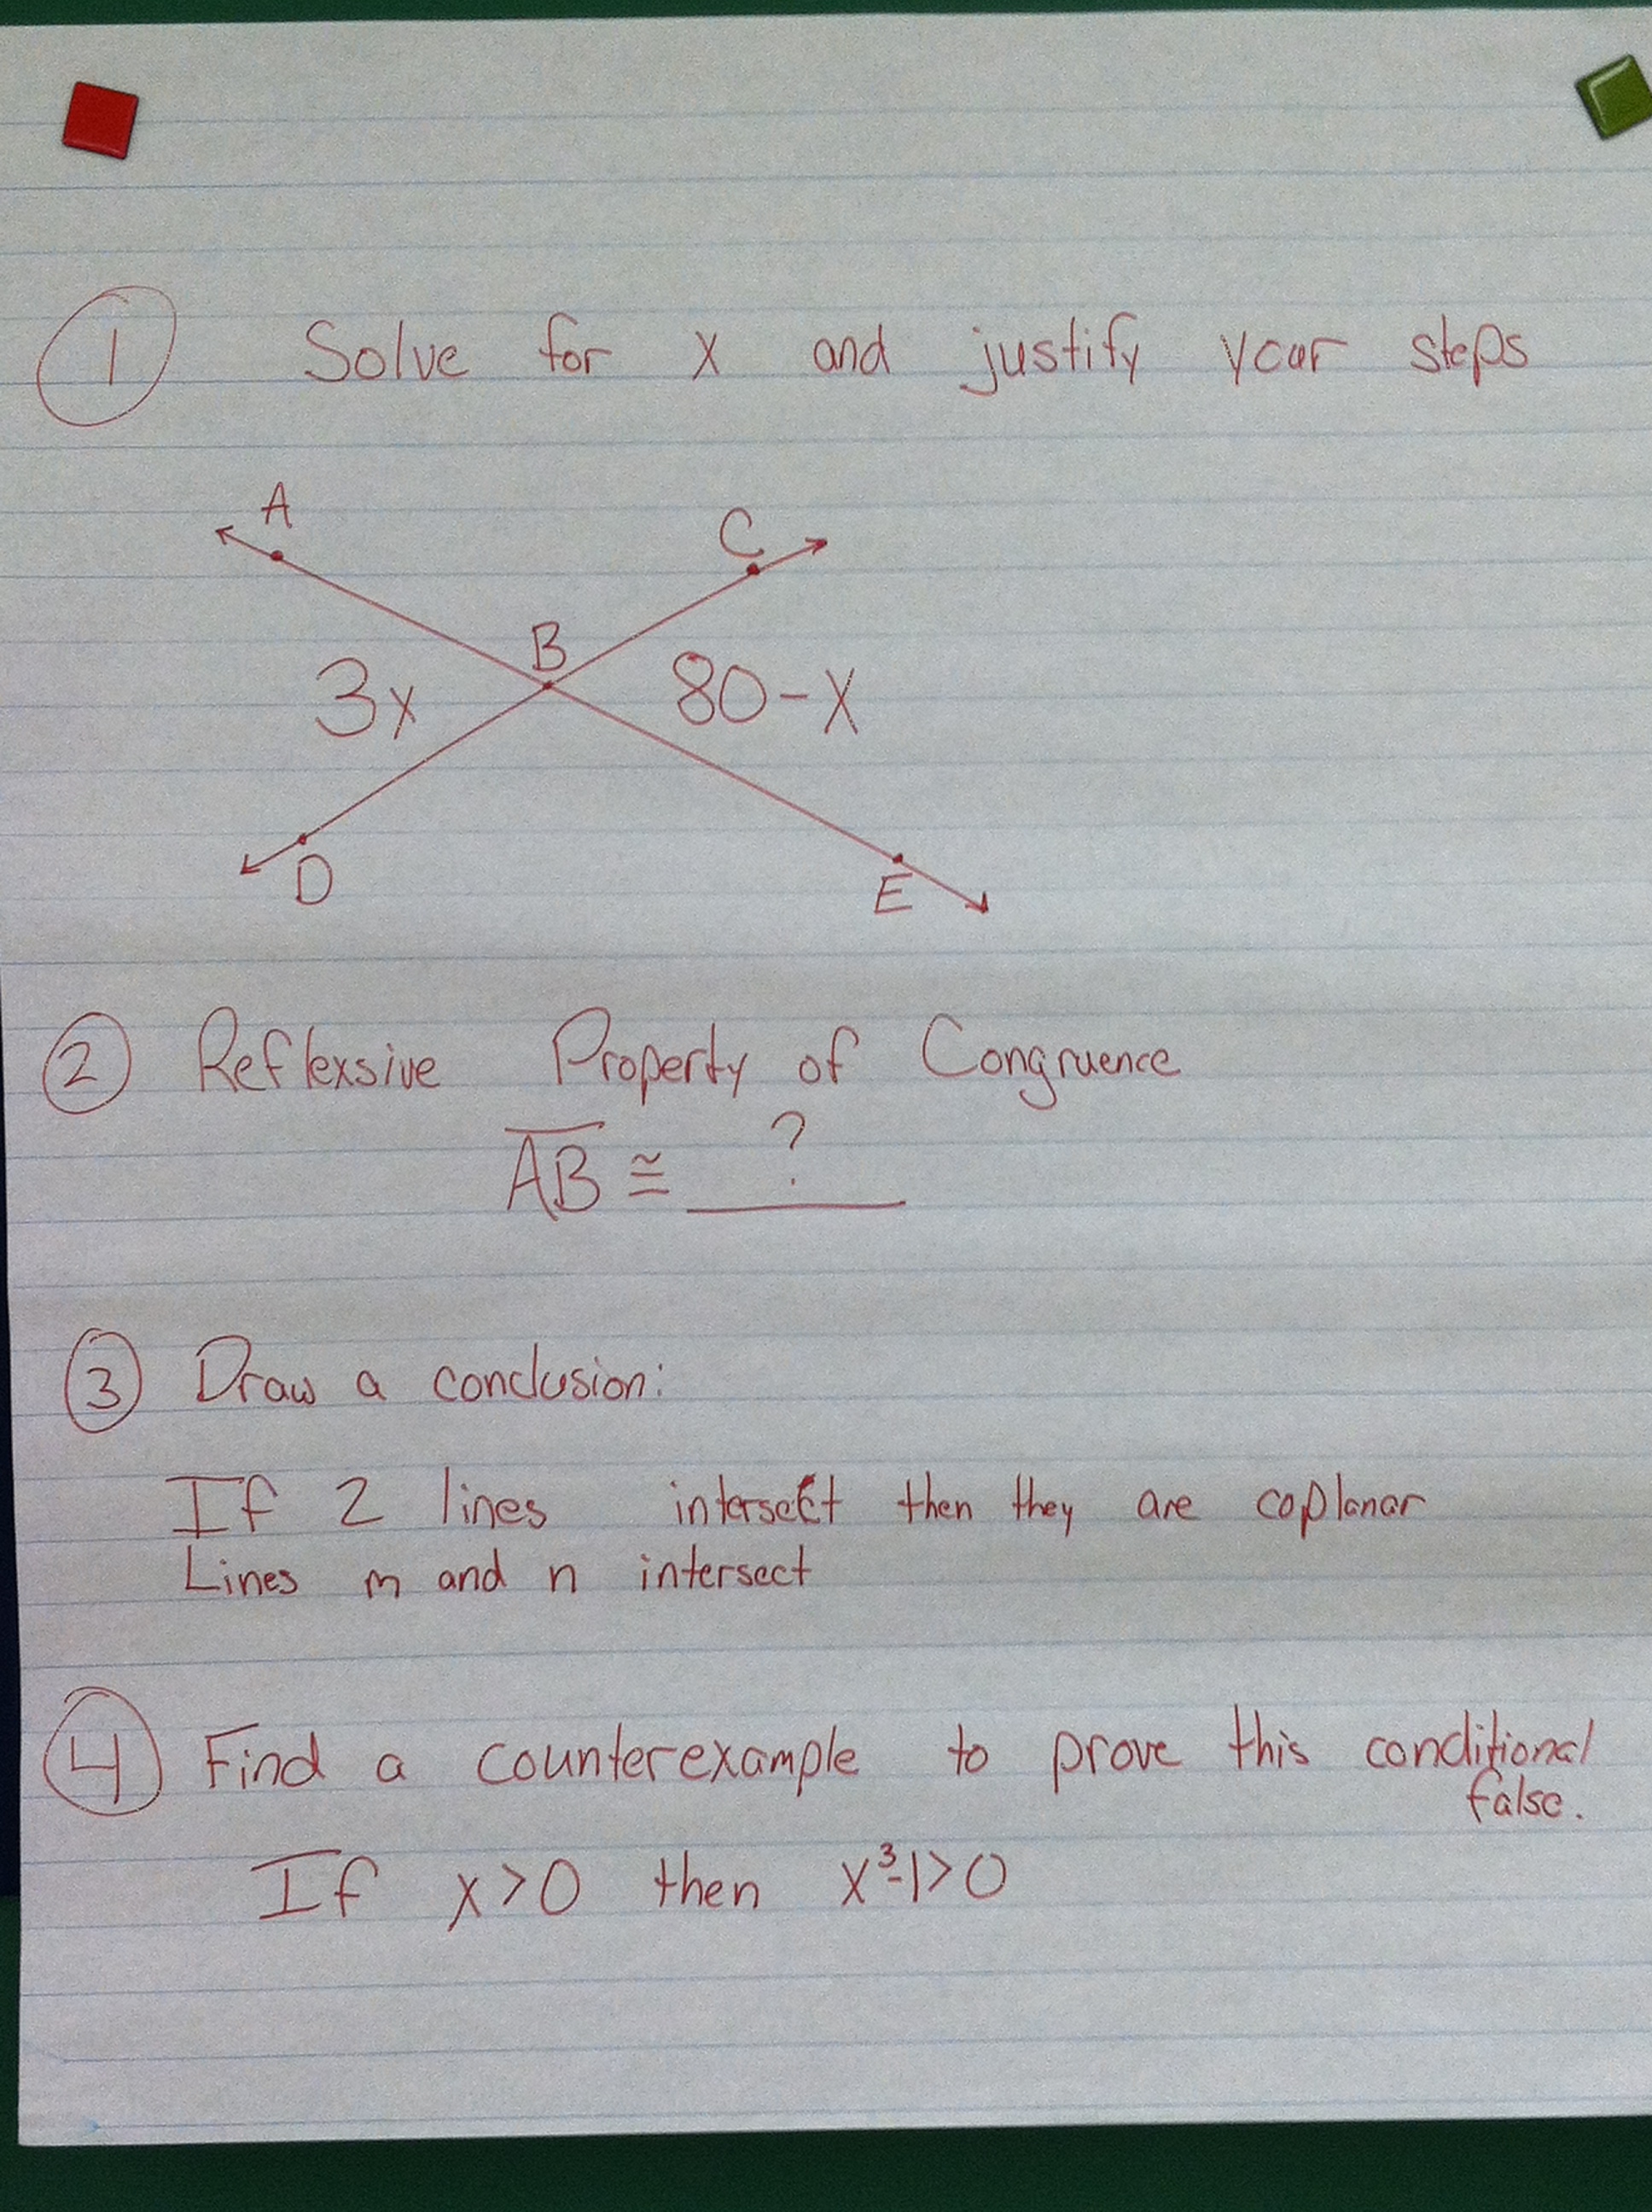 1 Solve for x and justify your steps
A
C
B
3x 80-x
D
E
2 Reflexsive Property of Congruence
A̅B̅ ≅ ?
3 Draw a conclusion:
If 2 lines intersect then they are coplanar
Lines m and n intersect
4 Find a counterexample to prove this conditional
false.
If x>0 then x³-1>0